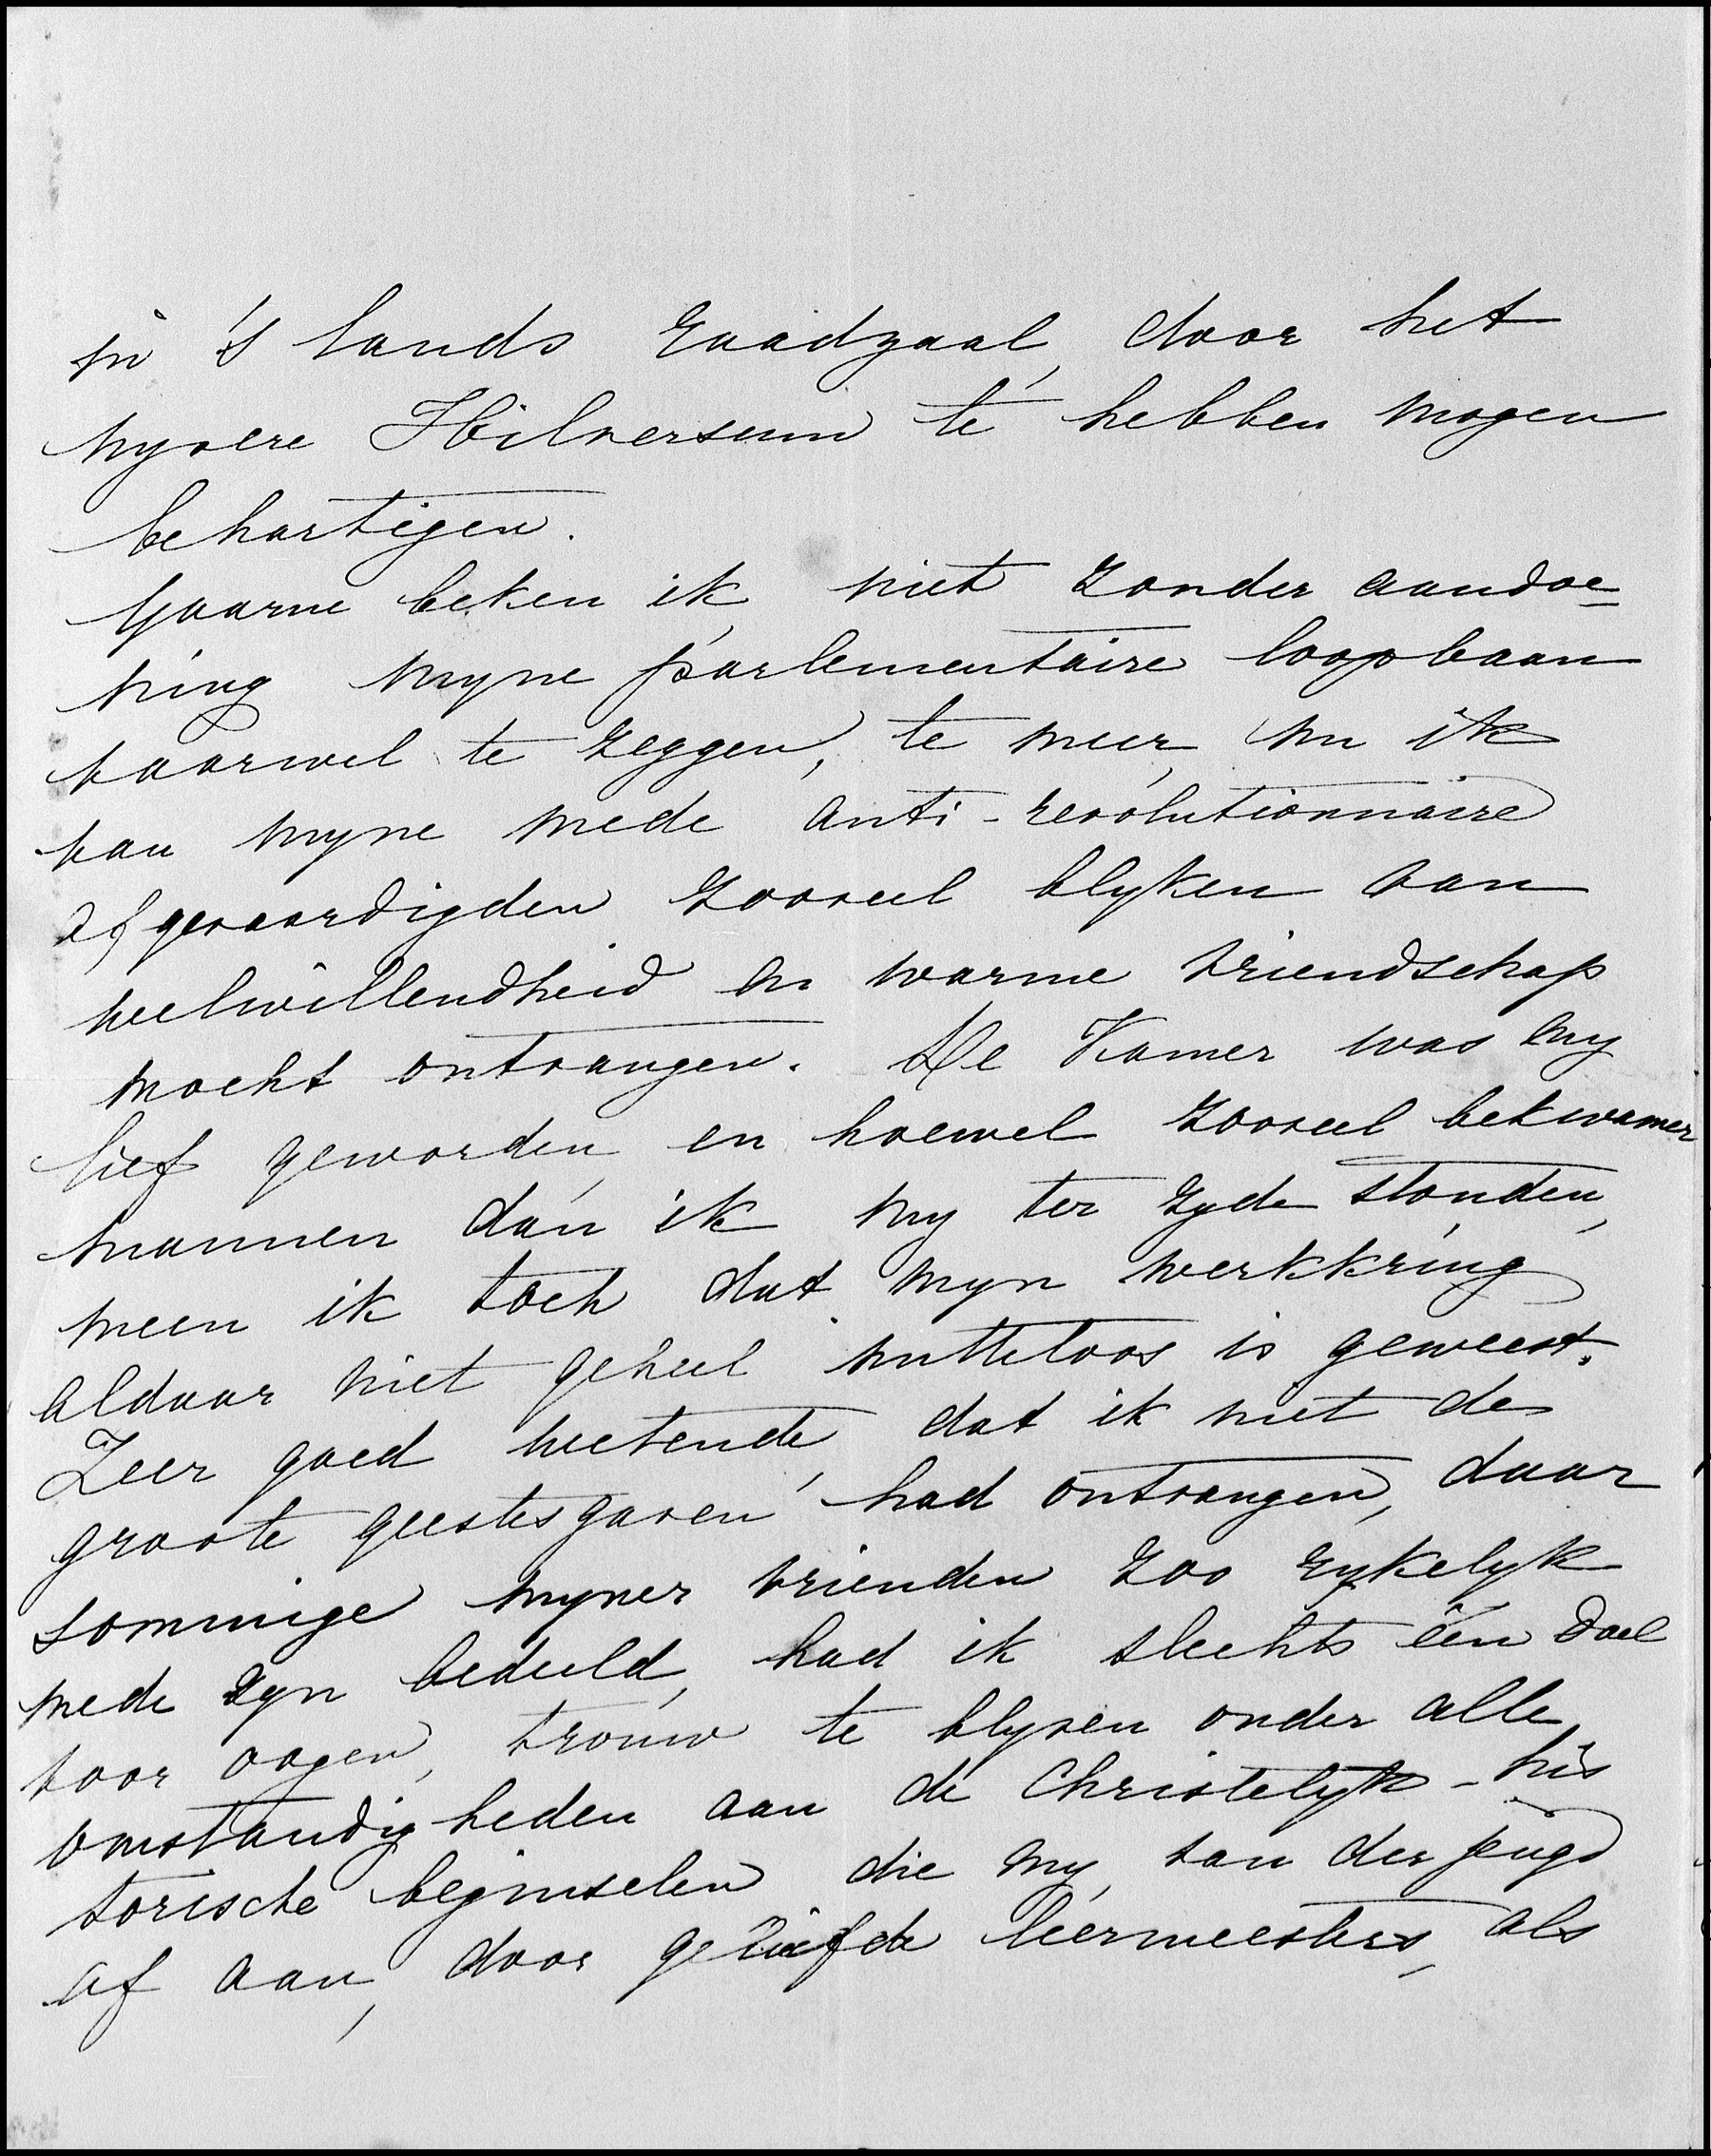 in 's lands raadzaal, door het
nyvere Hilversum te hebben mogen
behartigen.
Gaarne beken ik, niet zonder aandoe-
ning myne parlementaire loopbaan
vaarwel te zeggen, te meer, nu ik
van myne mede anti-revolutionnaire
afgevaardigden zooveel blyken van
welwillendheid en warme vriendschap
mocht ontvangen. De Kamer was my
lief geworden, en hoewel zooveel bekwamer
mannen dan ik my ter zyde stonden,
meen ik toch dat myn werkkring
aldaar niet geheel nutteloos is geweest.
Zeer goed wetende, dat ik niet de
groote geestesgaven had ontvangen, daar
sommige myner vrienden zoo rykelyk
mede zyn bedeeld, had ik slechts één doel
voor oogen, trouw te blyven onder alle
omstandigheden aan de Christelyk-his
torische beginselen die my, van der jeugd
af aan, door geliefde leermeesters, als